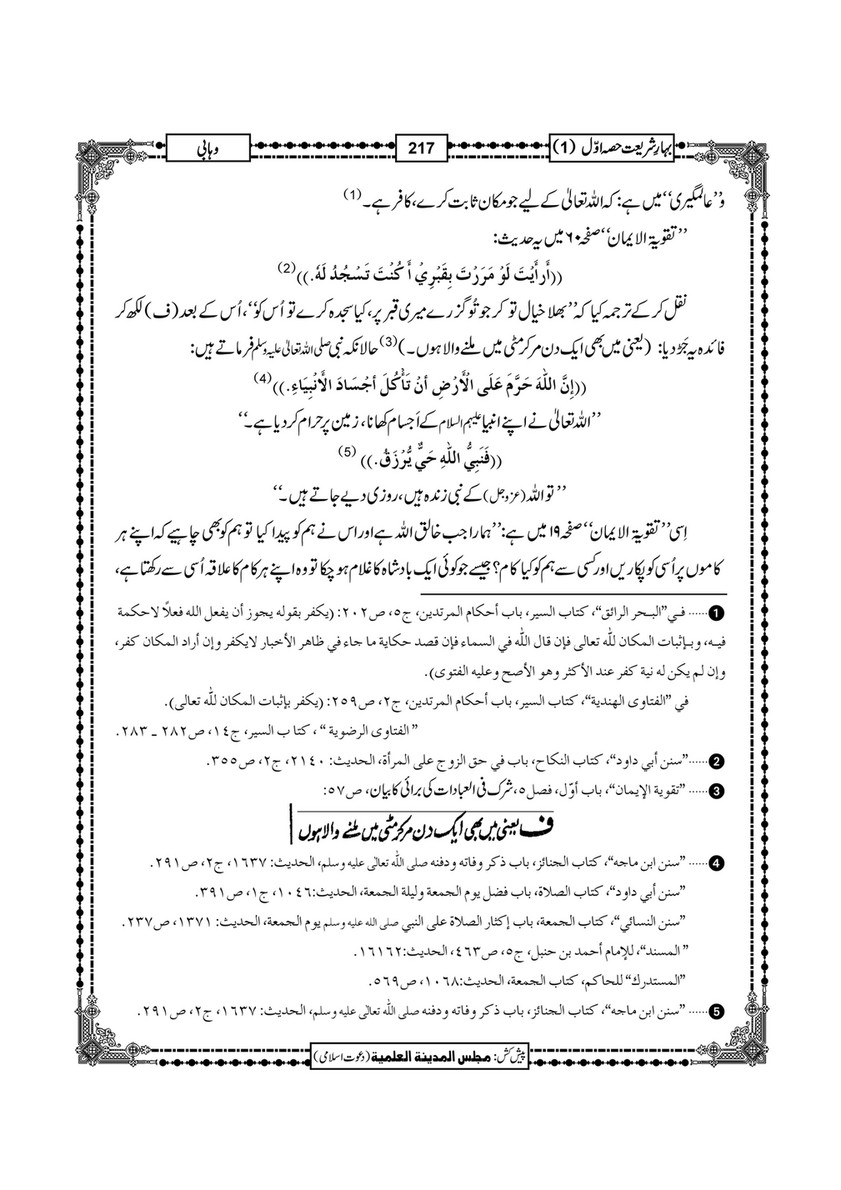 بہارِ شریعت حصہ اوّل (1)
217
وہابی
و”عالمگیری“ میں ہے: کہ اللہ تعالیٰ کے لیے جو مکان ثابت کرے، کافر ہے۔ (1)
”تقویۃ الایمان“ صفحہ ۶۰ میں یہ حدیث:
((أَرأَيْتَ لَوْ مَرَرْتَ بِقَبْرِيْ أَكُنْتَ تَسْجُدُ لَهٗ.)) (2)
نقل کر کے ترجمہ کیا کہ ”بھلا خیال تو کر جو تُو گزرے میری قبر پر، کیا سجدہ کرے تو اُس کو“، اُس کے بعد (ف) لکھ کر
فائدہ یہ جَڑ دیا: (یعنی میں بھی ایک دن مرکر مٹی میں ملنے والا ہوں۔) (3) حالانکہ نبی صلی اللہ تعالیٰ علیہ وسلم فرماتے ہیں:
((إِنَّ اللّٰهَ حَرَّمَ عَلَى الْأَرْضِ أنْ تَأْكُلَ أجْسَادَ الْأَنْبِيَاءِ.)) (4)
”اللہ تعالیٰ نے اپنے انبیا علیہم السلام کے اَجسام کھانا، زمین پر حرام کر دیا ہے۔“
((فَنَبِيُّ اللّٰهِ حَيٌّ يُّرْزَقُ.)) (5)
”تو اللہ (عزوجل) کے نبی زندہ ہیں، روزی دیے جاتے ہیں۔“
اِسی ”تقویۃ الایمان“ صفحہ ۱۹ میں ہے: ”ہمارا جب خالق اللہ ہے اور اس نے ہم کو پیدا کیا تو ہم کو بھی چاہیے کہ اپنے ہر
کاموں پر اُسی کو پکاریں اور کسی سے ہم کو کیا کام؟ جیسے جو کوئی ایک بادشاہ کا غلام ہو چکا تو وہ اپنے ہر کام کا علاقہ اُسی سے رکھتا ہے،
1 ...... فی”البحر الرائق“، كتاب السير، باب أحكام المرتدين، ج٥، ص٢٠٢: (يكفر بقوله يجوز أن يفعل الله فعلًا لاحكمة
فيه، وبإثبات المكان لله تعالى فإن قال الله في السماء فإن قصد حكاية ما جاء في ظاهر الأخبار لايكفر وإن أراد المكان كفر،
وإن لم يكن له نية كفر عند الأكثر وهو الأصح وعليه الفتوى).
في ”الفتاوى الهندية“، كتاب السير، باب أحكام المرتدين، ج٢، ص٢٥٩: (يكفر بإثبات المكان للّٰه تعالى).
”الفتاوى الرضوية“، كتا ب السير، ج١٤، ص٢٨٢ ـ ٢٨٣.
2 ......”سنن أبي داود“، كتاب النكاح، باب في حق الزوج على المرأة، الحديث: ٢١٤٠، ج٢، ص٣٥٥.
3 ...... ”تقوية الإيمان“، باب أوّل، فصل٥، شرک فی العبادات کی برائی کا بیان، ص٥٧:
ف یعنی میں بھی ایک دن مرکر مٹی میں ملنے والا ہوں
4 ...... ”سنن ابن ماجه“، كتاب الجنائز، باب ذكر وفاته ودفنه صلى الله تعالى عليه وسلم، الحديث: ١٦٣٧، ج٢، ص٢٩١.
”سنن أبي داود“، كتاب الصلاة، باب فضل يوم الجمعة وليلة الجمعة، الحديث:١٠٤٦، ج١، ص٣٩١.
”سنن النسائي“، كتاب الجمعة، باب إكثار الصلاة على النبي صلى الله عليه وسلم يوم الجمعة، الحديث: ١٣٧١، ص٢٣٧.
”المسند“، للإمام أحمد بن حنبل، ج٥، ص٤٦٣، الحديث:١٦١٦٢.
”المستدرك“ للحاكم، كتاب الجمعة، الحديث:١٠٦٨، ص٥٦٩.
5 ...... ”سنن ابن ماجه“، كتاب الجنائز، باب ذكر وفاته ودفنه صلى الله تعالى عليه وسلم، الحديث: ١٦٣٧، ج٢، ص٢٩١.
پیش کش: مجلس المدينة العلمية (دعوت اسلامی)